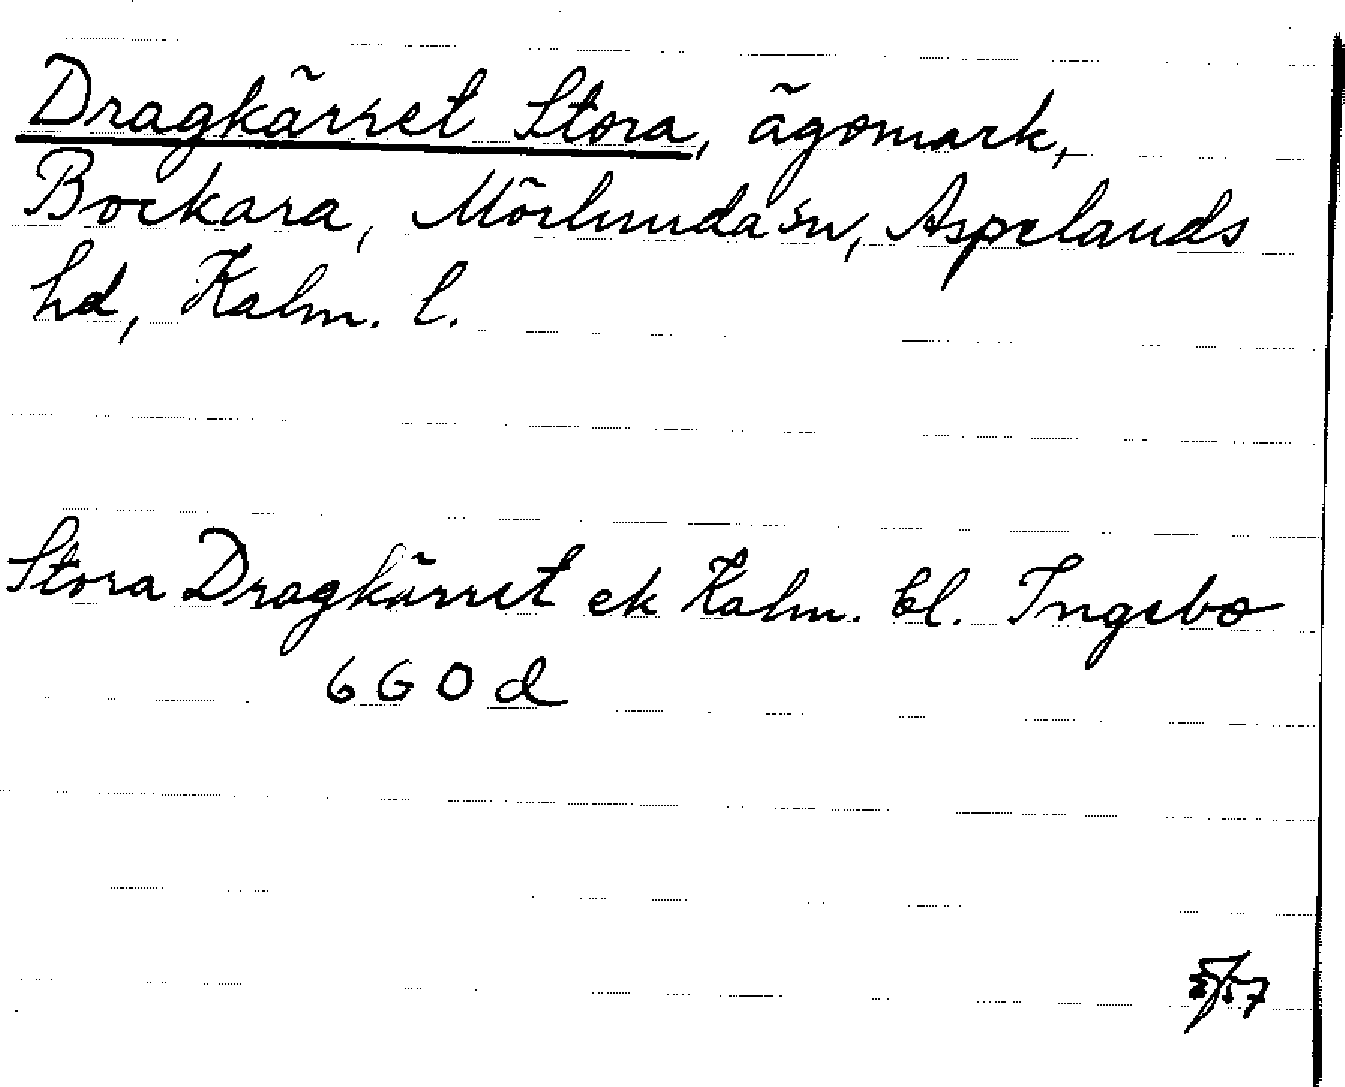 Dragkärret Stora, ägomark,
Bockara, Mörlunda sn, Aspelands
hd, Kalm. l.
Stora Dragkärret ek Kalm. bl. Ingebo
6 G 0 d